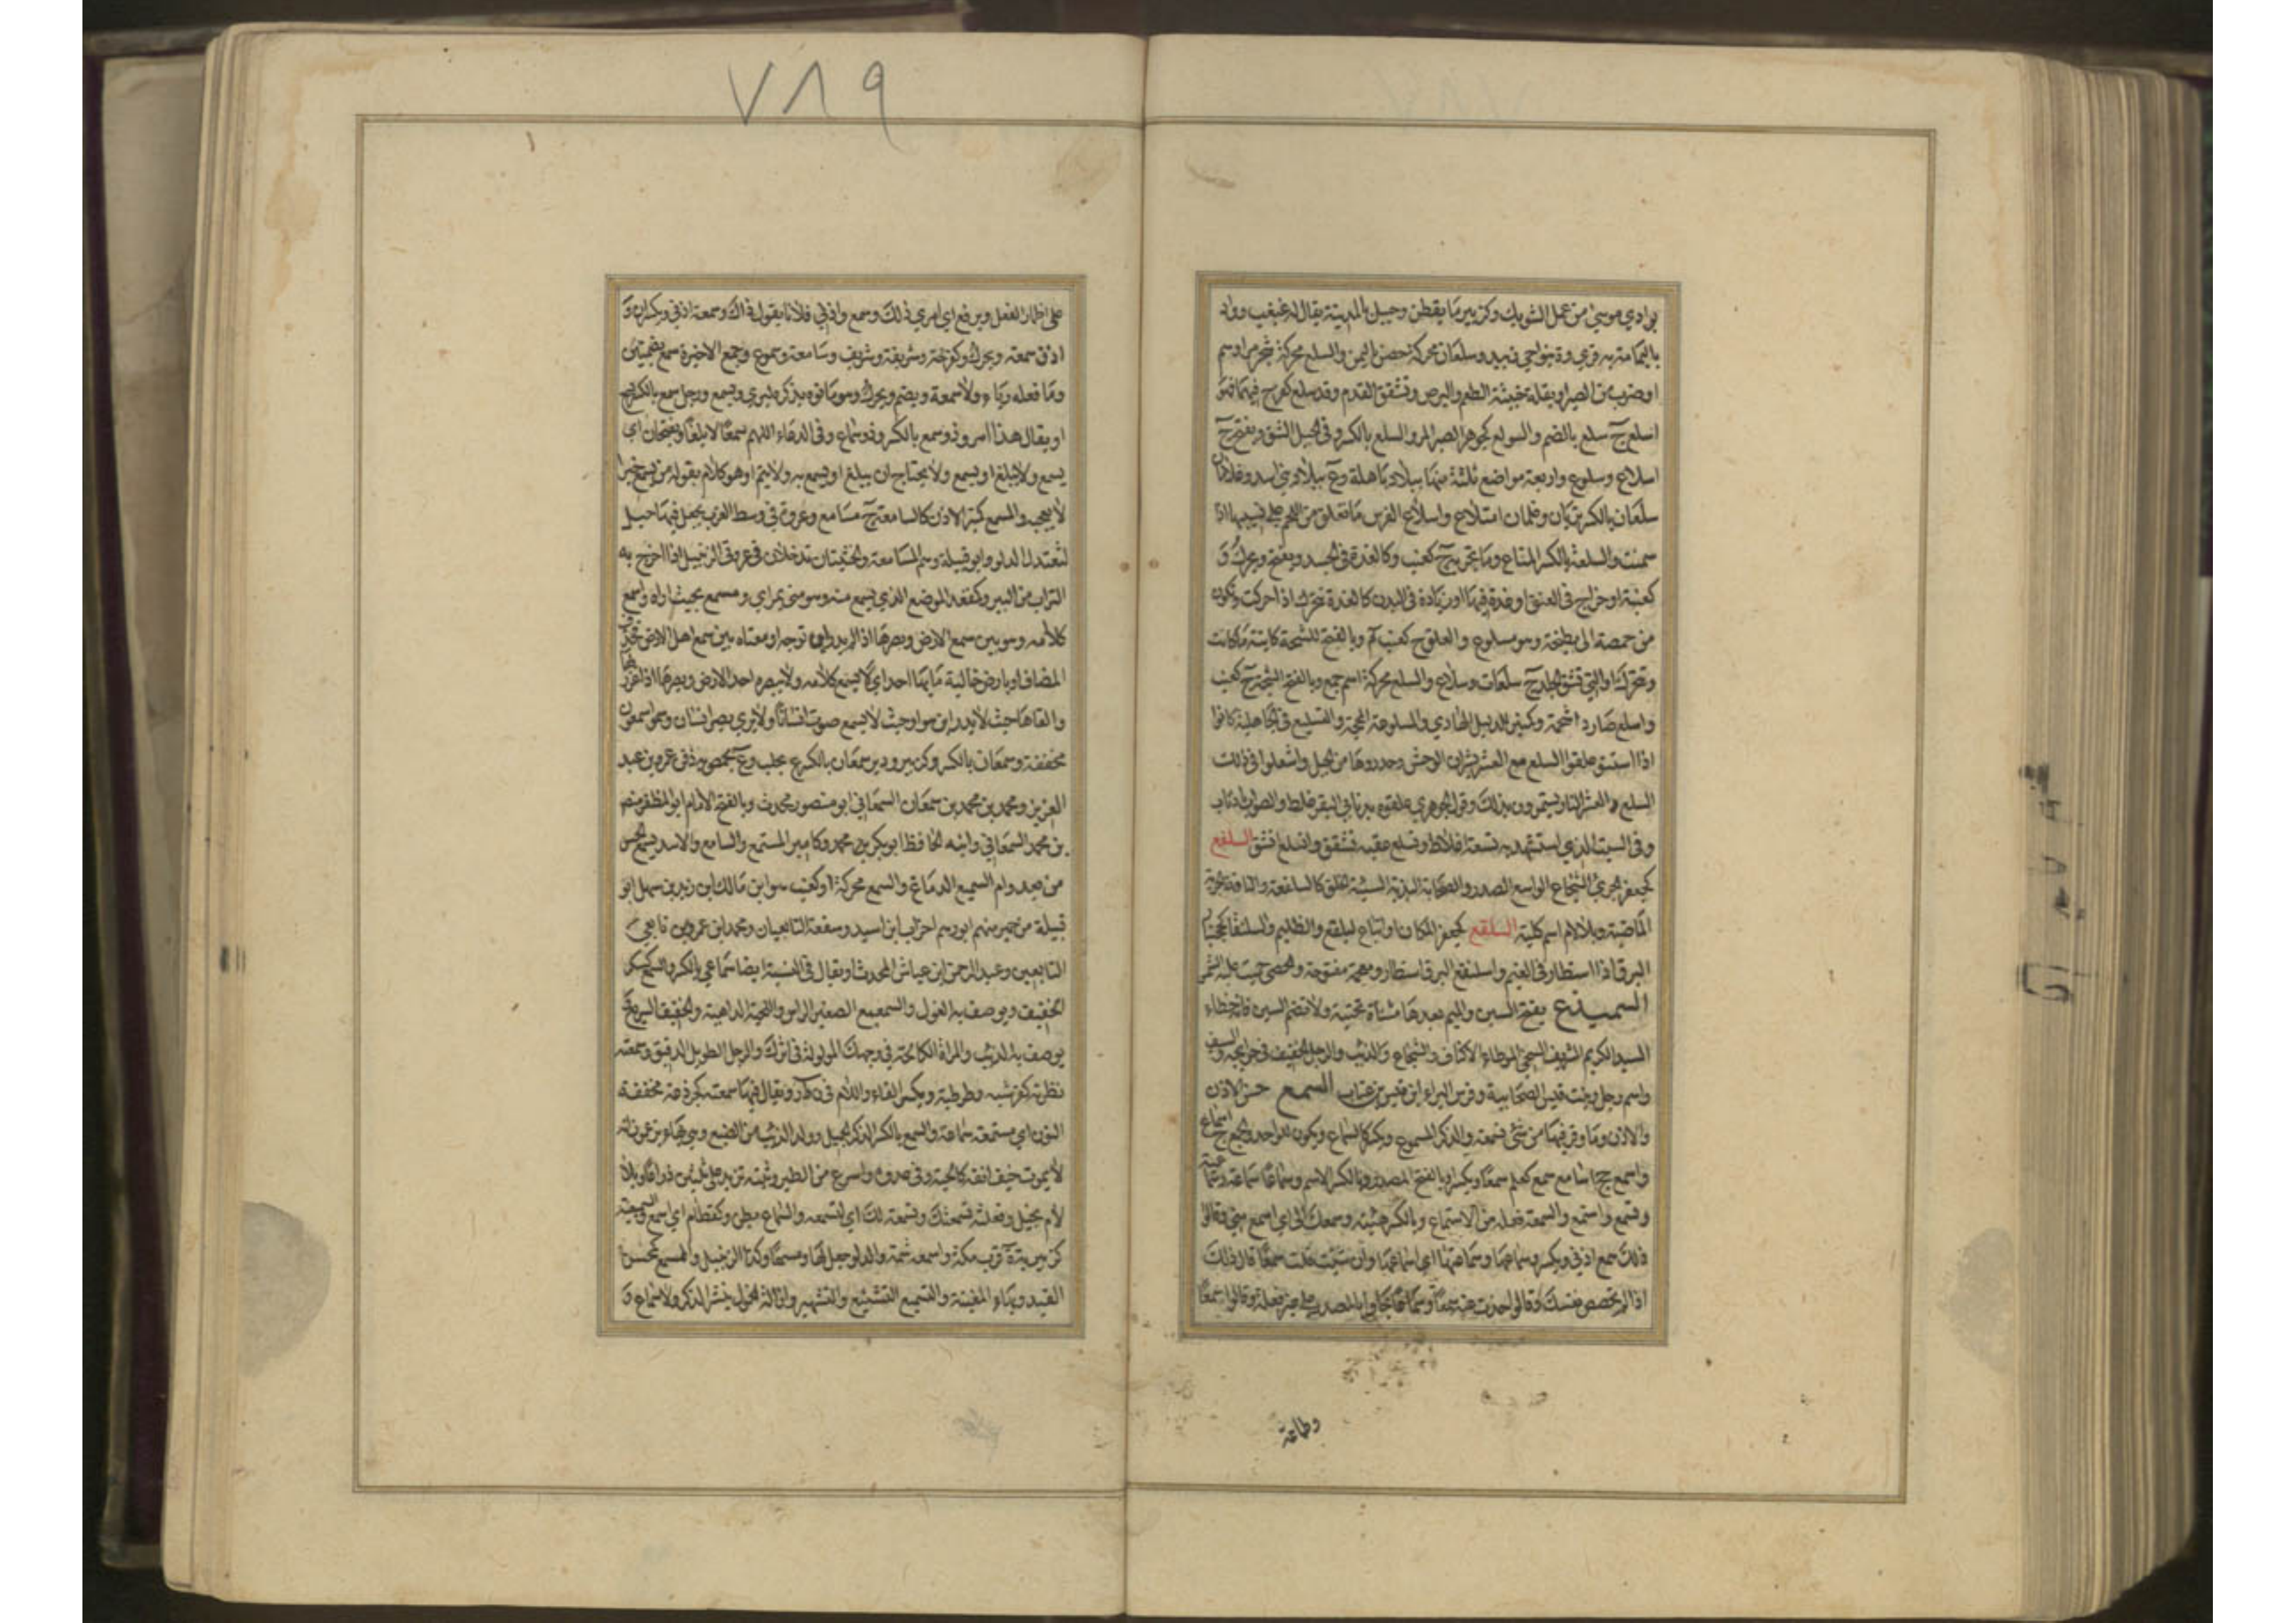 ٧٨٩
بوادي موسى من عمل الشوبك وكزبير ما يقطن وجبل بالمدينة يقال له غبغب وواد
باليمامة به قرى وة بنواحي زبيد وسلعان محركة حصن باليمن والسلع محركة شجر مر او سم
او ضرب من الصبر او بقلة خبيثة الطعم والبرص وتشقق القدم وقد سلع كفرح فيهما فهو
اسلع ج سلع بالضم والسولع كجوهر الصبر المر والسلع بالكسر وفي الجبل الشق ويفتح ج
اسلاع وسلوع واربعة مواضع ثلثة منها ببلاد باهلة وع ببلاد بني اسد وغلامان
سلعان بالكسر تربان وغلمان اسلاع واسلاع الفرس ما تعلق من اللحم على نسييها اذا
سمنت والسلعة بالكسر المتاع وما تجر به ج كعنب وكالغدة في الجسد ويفتح ويحرك و
كعنبة او خراج في العنق او غدة فيها او زيادة في البدن كالغدة تتحرك اذا حركت وتكون
من حمصة الى بطيخة وهو مسلوع والعلق ج كعنب وبالفتح للشجة كائنة ما كانت
وتحرك او التي تشق الجلد ج سلعات وسلاع والسلع محركة اسم جمع وبالفتح الشجة ج كعنب
واسلع صار ذا شجة وكمنبر الدليل الهادي والمسلوعة المحجة والتسليع في الجاهلية كانوا
اذا اسنتوا علقوا السلع مع العشر بثيران الوحش وحدروها من الجبل واشعلوا في ذلك
السلع والعشر النار ويستمطرون بذلك وقول الجوهري علقوه بذنابي البقر غلط والصواب باذناب
وفي البيت الذي استشهد به تسعة اغلاط وتسلع عقبه تشقق وانسلع انشق السلفع
كجعفر الجريء الشجاع الواسع الصدر والصخابة البذية السيئة الخلق كالسلفعة والناقة الجرية
الماضية وبلا لام اسم كلبة السلقع كجعفر المكان واتباع لبلقع والظليم واسلنقع
البرق اذا استطار في الغيم واسلنقع البرق استطار والحصى حميت عليه الشمس
السميدع بفتح السين والميم بعدها مثناة تحتية ولا تضم السين فانه خطاء
السيد الكريم الشريف السخي الموطاء الاكناف والشجاع والذئب والرجل الخفيف في حوايجه والسيف
واسم رجل وبنت قيس الصحابية وفرس البراء ابن قيس بن عتاب السمع حس الاذن
والاذن وما وقر فيها من شيء تسمعه والذكر المسموع ويكسر كالسماع ويكون للواحد والجمع ج اسماع
واسمع جج اسامع سمع كعلم سمعا ويكسر او بالفتح المصدر وبالكسر الاسم وسماعا وسماعة وسماعية
وتسمع واستمع والسمعة فعلة من الاستماع وبالكسر هيئته وسمعك الي اي اسمع مني وقالوا
ذلك سمع اذني ويكسر وسماعها وسماعتها اي اسماعها وان شئت قلت سمعا قال ذلك
اذا لم تخصص نفسك وقالوا اخذت عنه سمعا وسماعا جاؤا بالمصدر على غير فعله وقالوا سمعا
وطاعة
على اضمار الفعل ويرفع اي امري ذلك وسمع اذني فلانا يقول ذاك وسمعة اذني ويكسران و
اذن سمعة ويحرك وكفرحة وشريفة وشريف وسامعة وسموع وجمع الاخيرة سمع بضمتين
وما فعله رياء ولا سمعة ويضم ويحرك وهو ما نوه بذكره ليرى ويسمع ورجل سمع بالكسر
او يقال هذا امرؤ ذو سمع بالكسر وذو سماع وفي الدعاء اللهم سمعا لا بلغا ويفتحان اي
يسمع ولا يبلغ او يسمع ولا يحتاج ان يبلغ او يسمع به ولا يتم او هو كلام يقوله من يسمع خبرا
لا يعجبه والمسمع كمنبر الاذن كالسامعة ج مسامع وعروة في وسط الغرب يجعل فيها حبل
لتعتدل الدلو وابو قبيلة وهم المسامعة والخشبتان تدخلان في عروتي الزنبيل اذا اخرج به
التراب من البير وكمقعد الموضع الذي يسمع منه وهو مني بمرأى ومسمع بحيث اراه واسمع
كلامه وهو بين سمع الارض وبصرها اذا لم يدر اين توجه او معناه بين سمع اهل الارض فحذف
المضاف او بارض خالية ما بها احد اي لا يسمع كلامه ولا يبصره احد الا الارض وبصرها اذا غرر بها
والقاها حيث لا يدرى اين هو او حيث لا يسمع صوت انسان ولا يرى بصر انسان وسموا سمعون
مخففة وسمعان بالكسر وكزبير ودير سمعان بالكسر ع بحلب وع بحمص به دفن عمر بن عبد
العزيز ومحمد بن محمد بن سمعان السمعاني ابو منصور محدث وبالفتح الامام ابو المظفر منصور
بن محمد السمعاني وابنه الحافظ ابو بكر بن محمد وكامير المسمع والسامع والاسد يسمع الحس
من بعد وام السميع الدماغ والسمع محركة او كعنب هو ابن مالك بن زيد بن سهل ابو
قبيلة من حمير منهم ابو رهم احزاب ابن اسيد وشفعة التابعيان ومحمد ابن عمرو من تابعي
التابعين وعبد الرحمن ابن عياش المحدث او يقال في النسبة ايضا سماعي بالكسر والسمع
الخفيف ويوصف به الغول والسمعمع الصغير الراس واللحية الداهية والخفيف السريع
يوصف به الذئب والمراة الكالحة في وجهك المولولة في اثرك والرجل الطويل الدقيق وسمعنة
نظرنة كقرشبة وطرطبة ويكسر الفاء واللام في ويقال فيها سمعنة كخروعة مخففة
النون اي مستمعة سماعة والسمع بالكسر الذكر الجميل وولد الذئب من الضبع وهي بهاء يزعمون انه
لا يموت حتف انفه كالحية وفي عدوه اسرع من الطير ووثبته تزيد على ثلثين ذراعا وبلا
لام جبل وفعلته تسمعتك وتسمعة لك اي لتسمعه والسماع بطن وكقطام اي اسمع والسميعية
كزبيرية ة قرب مكة واسمعه شتمه والدلو جعل لها مسمعا وكذا الزنبيل والمسمع كمحسن
القيد وبهاء المغنية والتسميع التشنيع والتشهير وازالة الخمول بنشر الذكر والاسماع و